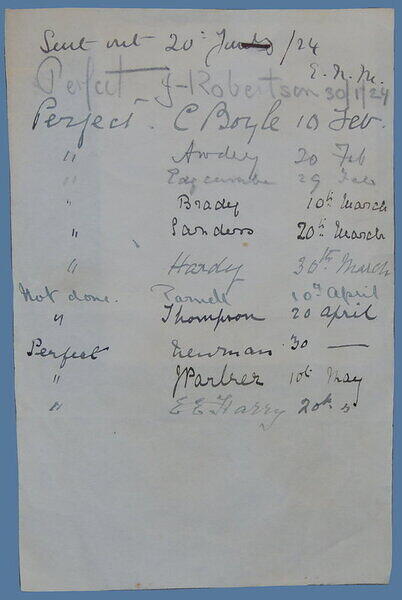 Sent out 20th /24
E. N. M.
Perfect J-Robertson 30/1/24
Perfect - C Boyle 10 Feb.
" Awdry 20 Feb
" Edgcumbe 29 Feb
" Brady 10th March
" Sanders 20th March
" Hardy 30th March
Not done. Parnell 10th April
" Thompson 20 April
Perfect Newman 30 —
" J Partner 10th May
" E E Harry 20th "